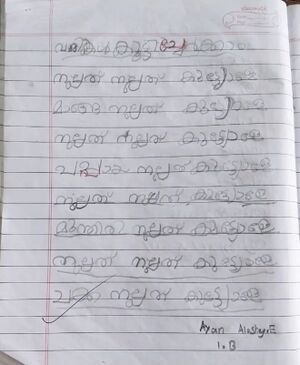 വരികൾ കൂട്ടിച്ചേർക്കാം
നല്ലത് നല്ലത് കുട്ട്യോളെ
മാങ്ങ നല്ലത് കുട്ട്യോളെ
നല്ലത് നല്ലത് കുട്ട്യോളെ
പപ്പായ നല്ലത് കുട്ട്യോളെ
നല്ലത് നല്ലത് കുട്ട്യോളെ
മുന്തിരി നല്ലത് കുട്ട്യോളെ
നല്ലത് നല്ലത് കുട്ട്യോളെ
ചക്ക നല്ലത് കുട്ട്യോളെ
Ayan
1.B